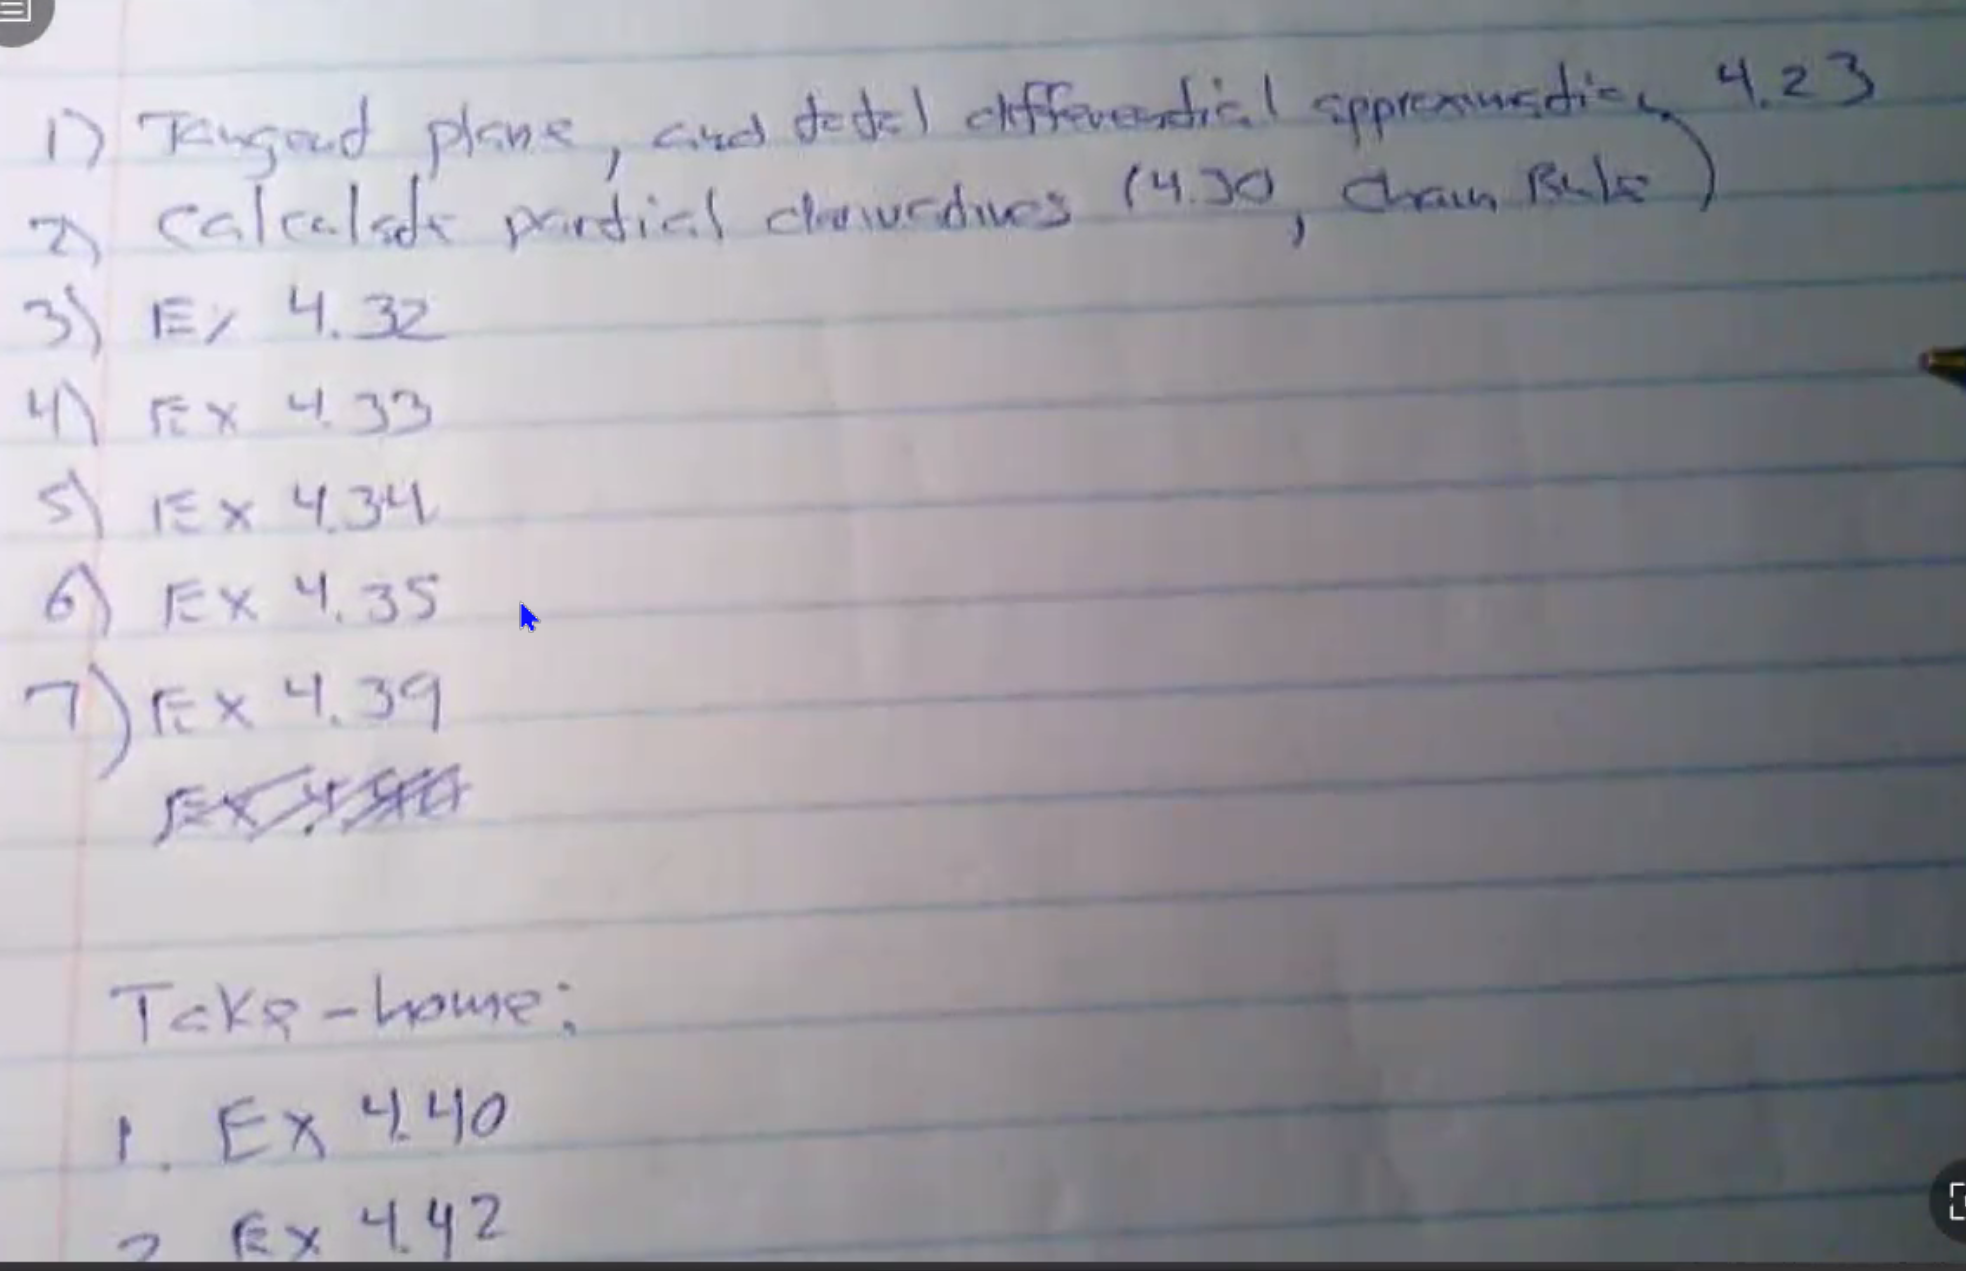 1) Tangent plane, and total differential approximation 4.23
2) Calculate partial derivatives (4.30, Chain Rule)
3) Ex 4.32
4) Ex 4.33
5) Ex 4.34
6) Ex 4.35
7) Ex 4.39
Take-home:
1. Ex 4.40
2. Ex 4.42